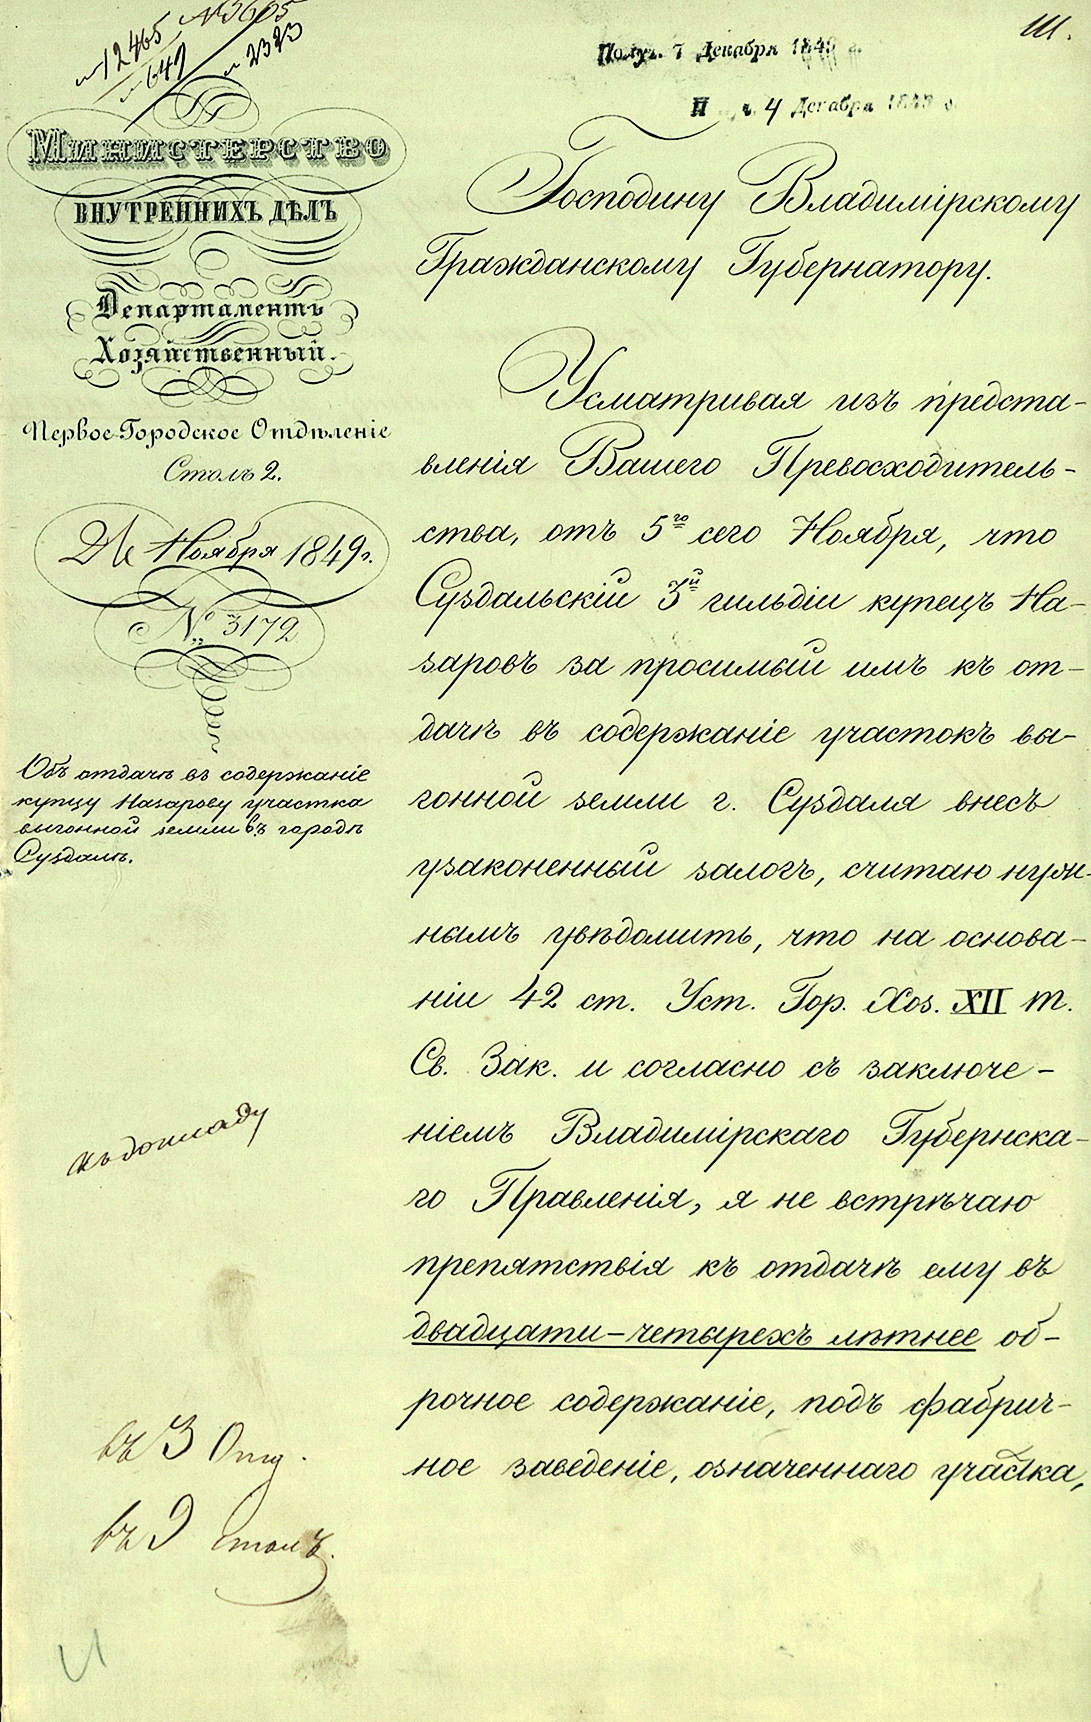 № 3605
№ 12465
№ 649
№ 2323
Ш.
Получ. 7 Декабря 1849 г.
4 Декабря 1849 г.
Министерство
внутреннихъ дѣлъ
Департаментъ
Хозяйственный.
Первое Городское Отдѣленіе
Столъ 2.
Ноября 1849 г.
№ 3172
Объ отдачѣ въ содержаніе
купцу Назарову участка
выгонной земли въ городѣ
Суздалѣ.
Господину Владимірскому
Гражданскому Губернатору.
Усматривая изъ предста-
вленія Вашего Превосходитель-
ства, отъ 5го сего Ноября, что
Суздальскій 3й гильдіи купецъ На-
заровъ за просимый имъ къ от-
дачѣ въ содержаніе участокъ вы-
гонной земли г. Суздаля внесъ
узаконенный залогъ, считаю нуж-
нымъ увѣдомить, что на основа-
ніи 42 ст. Уст. Гор. Хоз. XII т.
Св. Зак. и согласно съ заключе-
ніемъ Владимірскаго Губернска-
го Правленія, я не встрѣчаю
препятствія къ отдачѣ ему въ
двадцати-четырехъ лѣтнее об-
рочное содержаніе, подъ фабрич-
ное заведеніе, означеннаго участка,
къ докладу
въ 3 Отд.
въ 2 столъ.